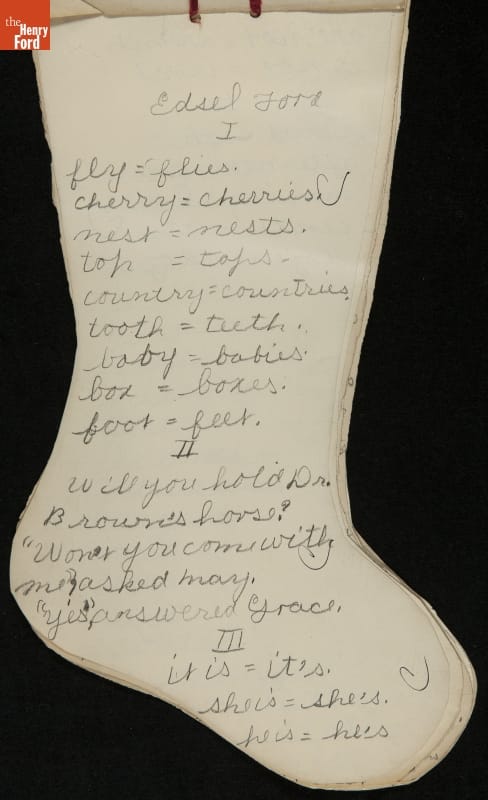 the
Henry
Ford
Edsel Ford
I
fly = flies.
cherry = cherries.
nest = nests.
top = tops.
country = countries.
tooth = teeth.
baby = babies.
box = boxes.
foot = feet.
II
Will you hold Dr.
Brown's horse?
"Won't you come with
me?" asked May.
"Yes," answered Grace.
III
it is = it's.
she is = she's.
he is = he's